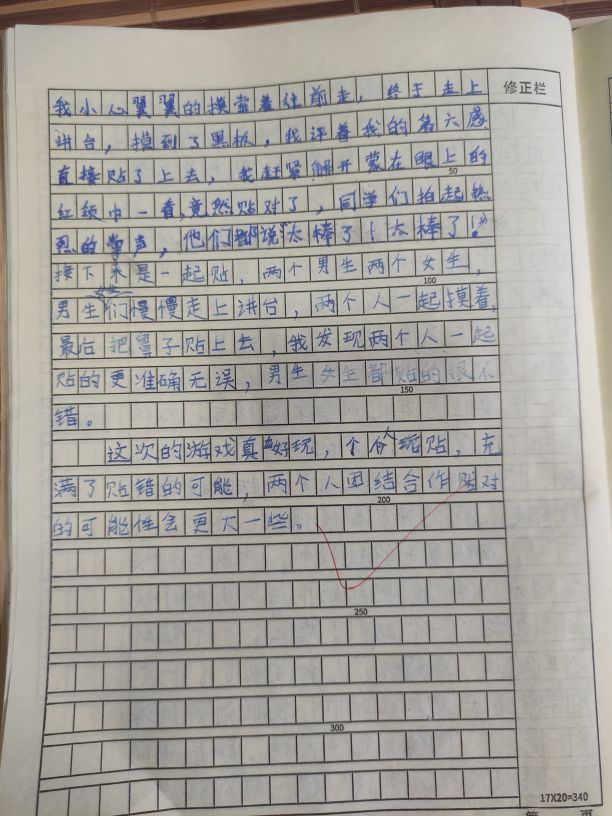 修正栏
我小心翼翼的摸索着往前走，终于走上
讲台，摸到了黑板，我评着我的第六感
直接贴了上去，我赶紧解开蒙在眼上的
50
红领巾一看，竟然贴对了，同学们拍起热
烈的掌声，他们都说"太棒了！太棒了！"
接下来是一起贴，两个男生两个女生，
100
男生们慢慢走上讲台，两个人一起摸着，
最后把鼻子贴上去，我发现两个人一起
贴的更准确无误，男生女生都贴的很不
150
错。
这次的游戏真好玩，个人玩贴，充
满了贴错的可能，两个人团结合作贴对
200
的可能性会更大一些。
250
300
17X20=340
第 页